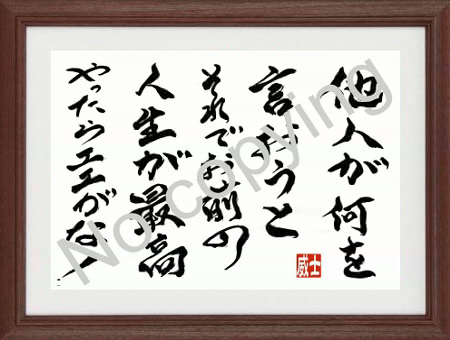 他人が何を
言おうと
それでお前の
人生が最高
やったらエエがな!
威士
No copying